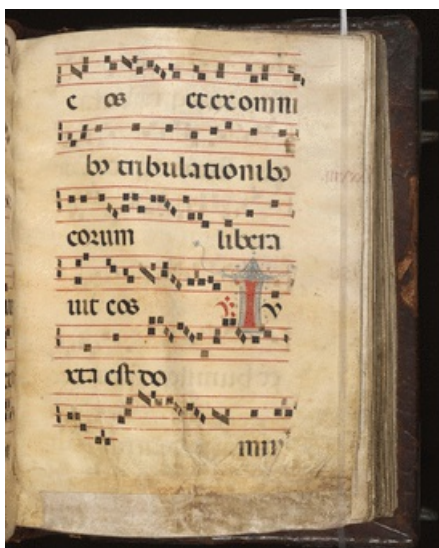 e os et ex omni
bꝰ tribulationibꝰ
eorum libera
uit eos ℣ I V
xta est do
min